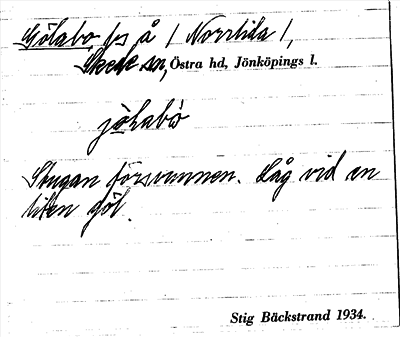 Gölabo, fs å / Norrlida /,
Skede sn, Östra hd, Jönköpings l.
jö̀labò
Stugan försvunnen. Låg vid en
liten göl.
Stig Bäckstrand 1934.